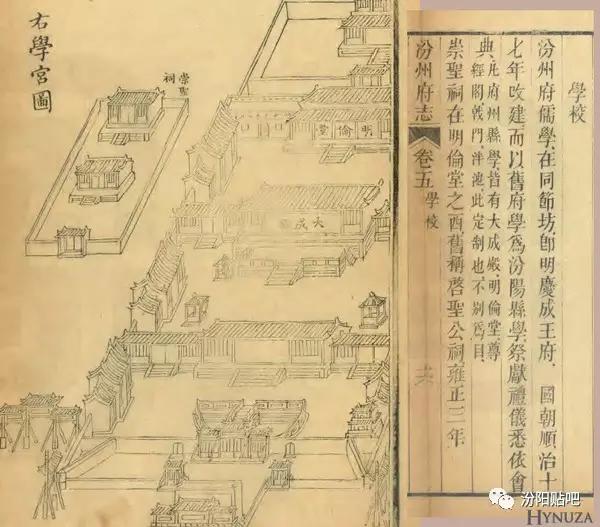 學校
汾州府儒學在同節坊卽明慶成王府國朝順治十
七年改建而以舊府學爲汾陽縣學祭獻禮儀悉依會
典凡府州縣學皆有大成殿明倫堂尊
經閣戟門泮池此定制也不别爲目
崇聖祠在明倫堂之西舊稱啓聖公祠雍正三年
汾州府志 卷五 學校 十六
明倫堂
大成
崇聖
祠
右學宮圖
汾阳贴吧
HYNUZA